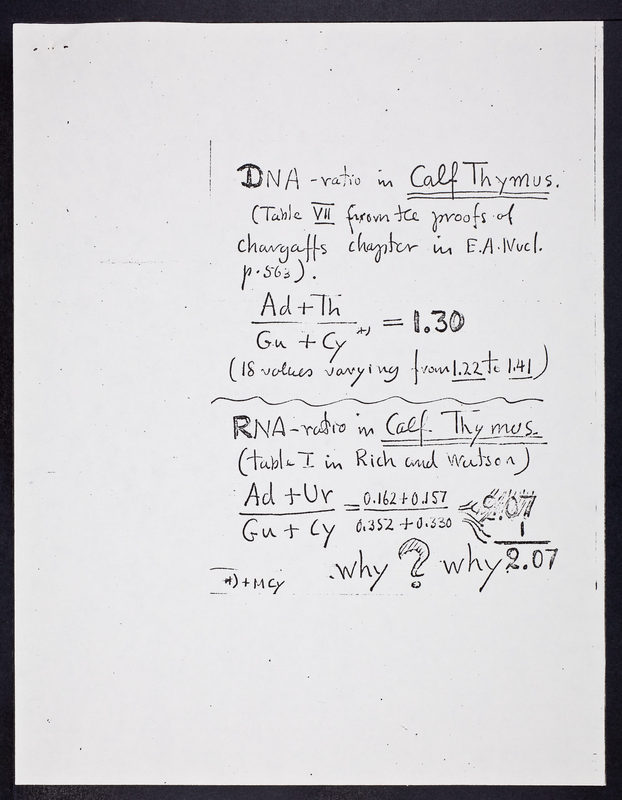 DNA-ratio in Calf Thymus.
(Table VII from the proofs of
chargaffs chapter in E.A. Nucl.
p.563).
Ad + Th
Gu + Cy *) = 1.30
(18 values varying from 1.22 to 1.41)
RNA-ratio in Calf Thymus.
(table I in Rich and Watson)
Ad + Ur = 0.162+0.157 = 2.07
Gu + Cy 0.352+0.330 1
2.07
.why ? why
*) + MCy